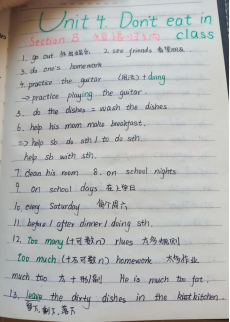 Unit 4. Don't eat in
class
Section B
1. go out 2. see friends
3. do one's homework
4. practice the guitar + doing
→ practice playing the guitar.
5. do the dishes = wash the dishes
6. help his mom make breakfast.
=> help sb do sth / to do sth.
help sb with sth.
7. clean his room 8. on school nights
9. on school days 在上学日
10. every Saturday 每个周六
11. before / after dinner / doing sth.
12. Too many (+可数n) rlues 太多规则
too much (+不可数n) homework 太多作业
much too 太 + 形/副 He is much too fat.
13. leave the dirty dishes in the kitchen
留下,剩下,落下